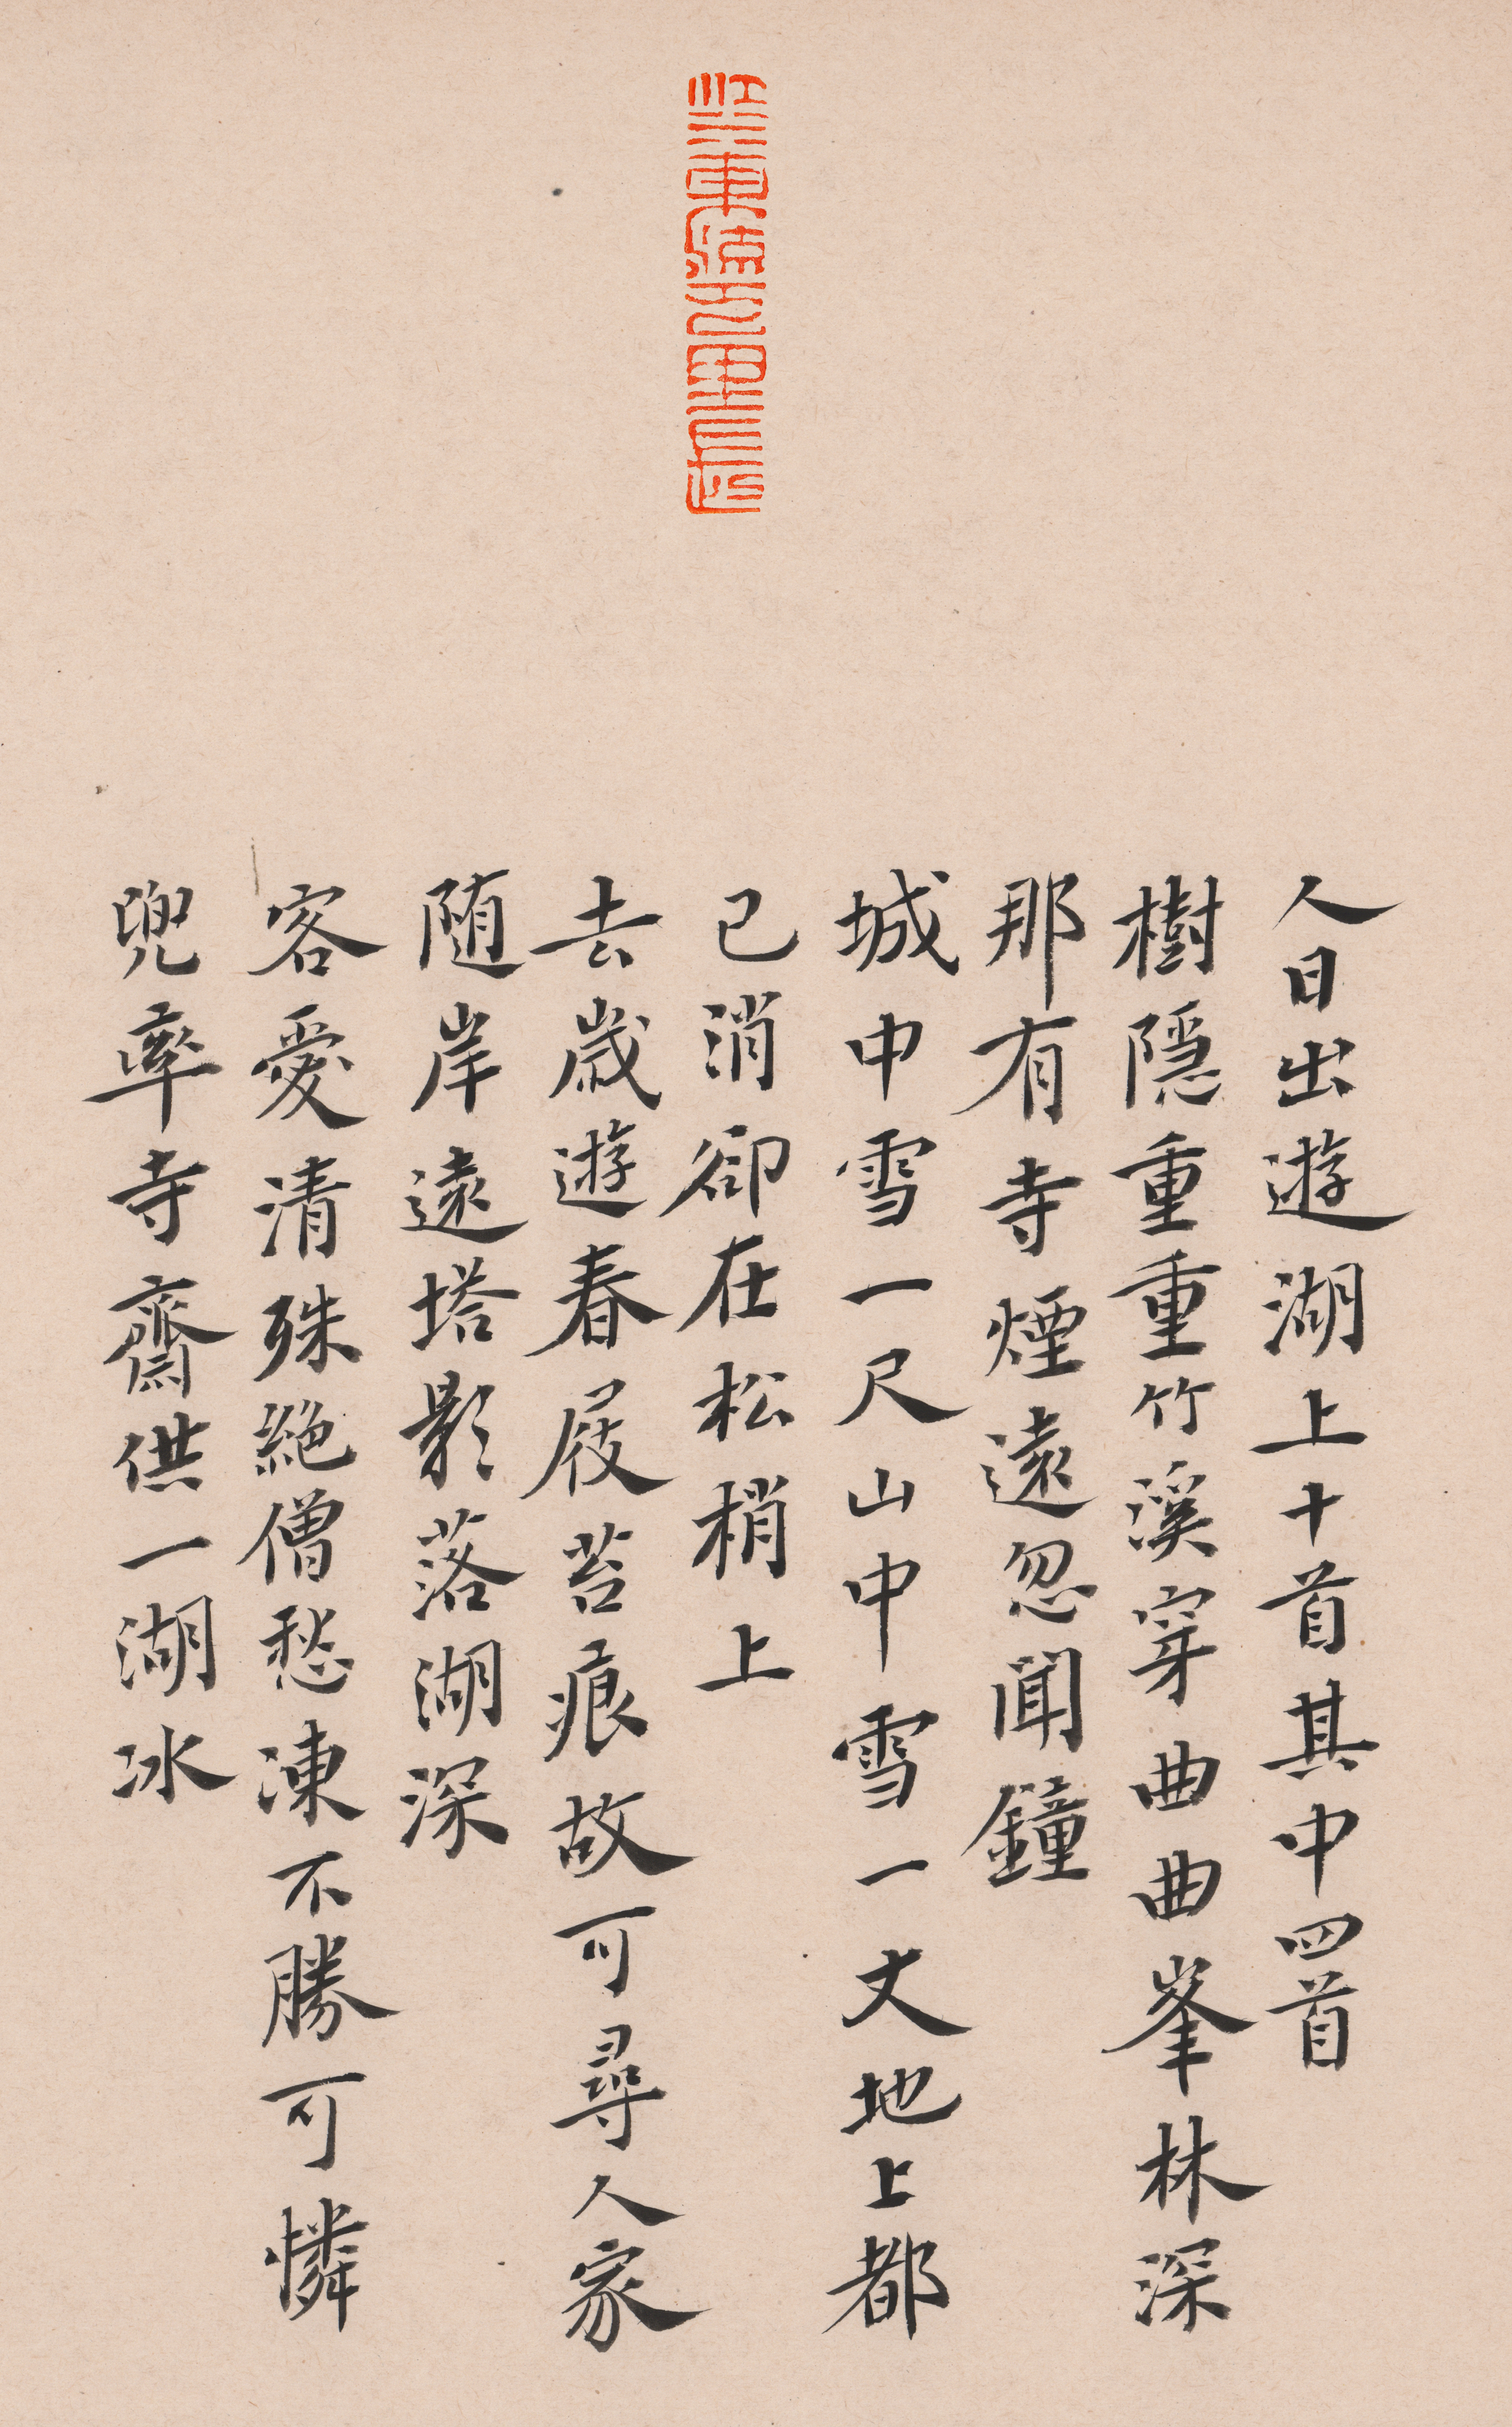 人日出遊湖上十首其中四首
樹隱重重竹溪穿曲曲峯林深
那有寺煙遠忽聞鐘
城中雪一尺山中雪一丈地上都
已消卻在松梢上
去歲遊春屐苔痕故可尋人家
随岸遠塔影落湖深
客愛清殊絕僧愁凍不勝可憐
兜率寺齋供一湖冰